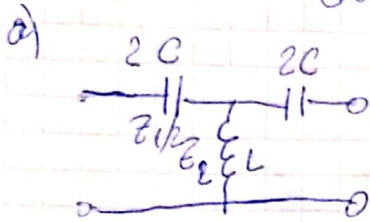 a)
2C 2C
Z1/2 Z2 L